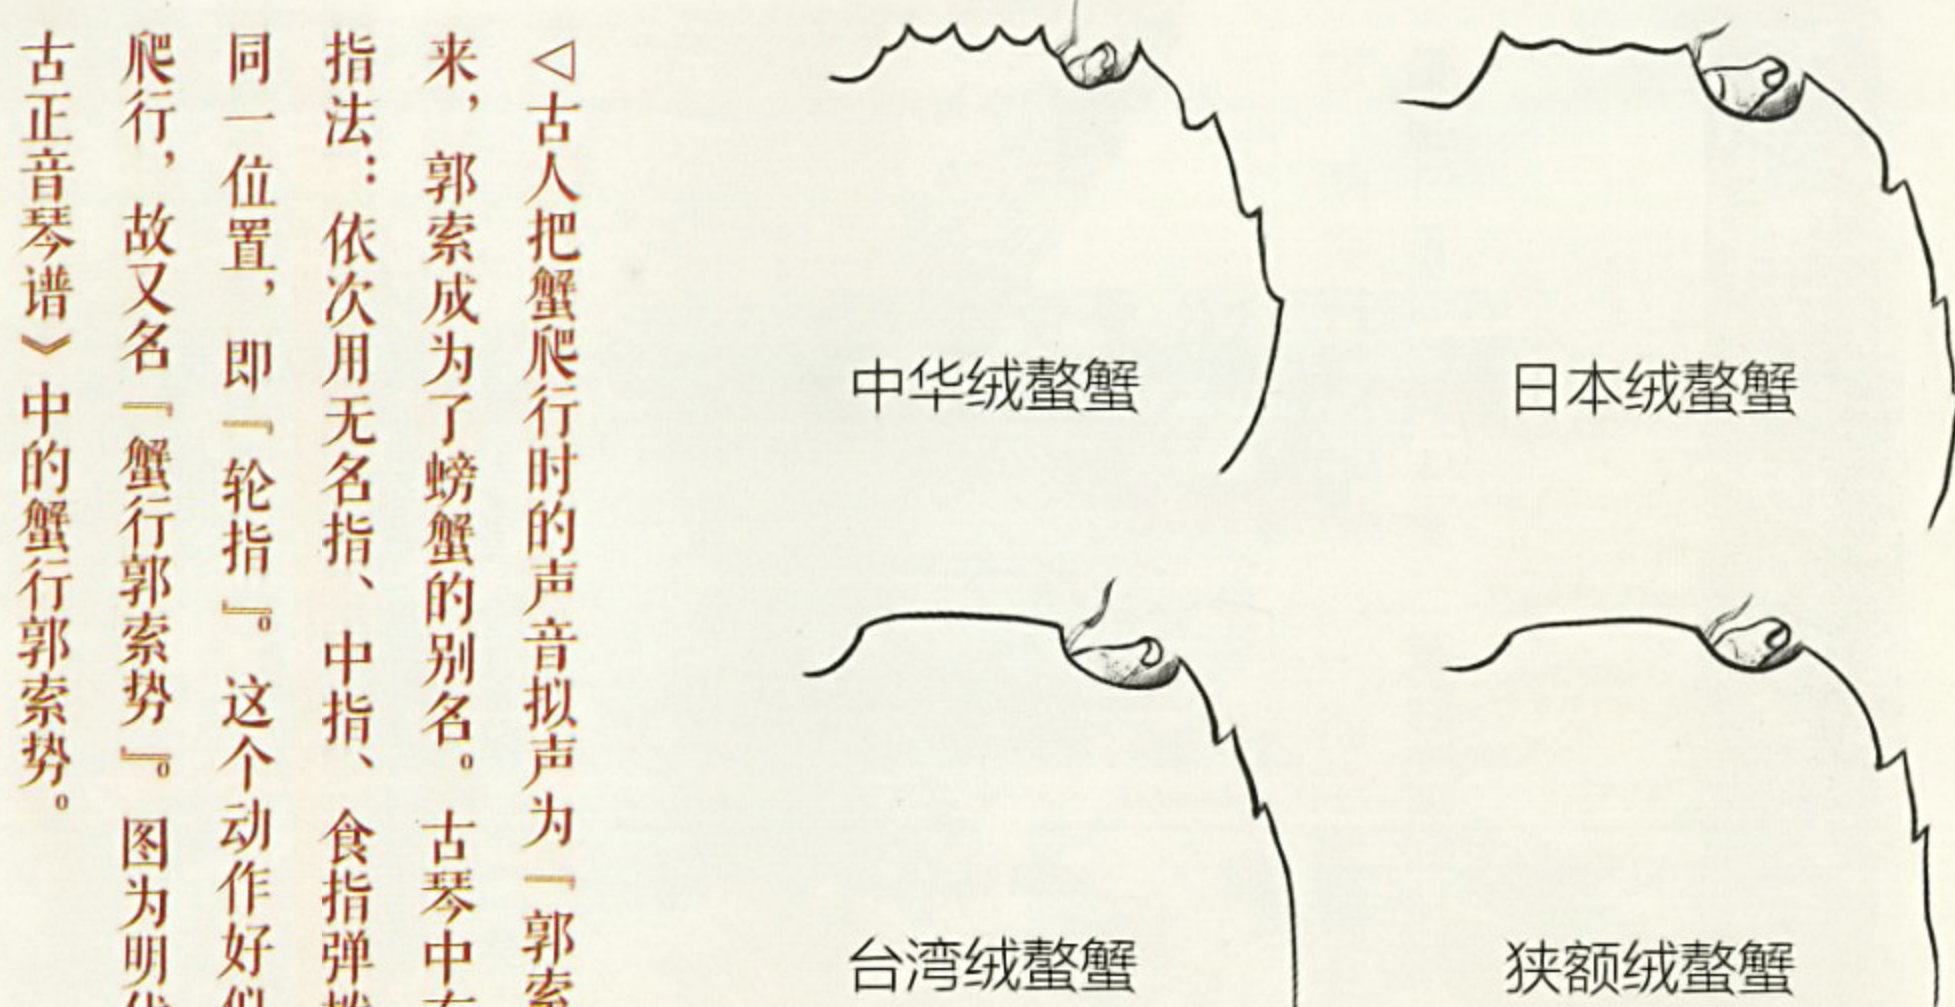 ◁古人把蟹爬行时的声音拟声为『郭索
来，郭索成为了螃蟹的别名。古琴中
指法：依次用无名指、中指、食指弹
同一位置，即『轮指』。这个动作好
爬行，故又名『蟹行郭索势』。图为明
古正音琴谱》中的蟹行郭索势。
中华绒螯蟹
日本绒螯蟹
台湾绒螯蟹
狭额绒螯蟹